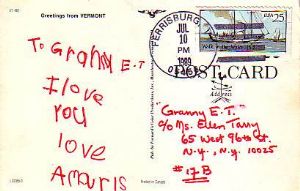 Greetings from VERMONT
FERRISBURG,
JUL
10
PM
USA 25
POST CARD
Address
To Granny E.T
I love
you
love
Amouris
"Granny E.T."
c/o Ms. Ellen Tarry
65 West 96th St.
N.Y., N.Y. 10025
#17B